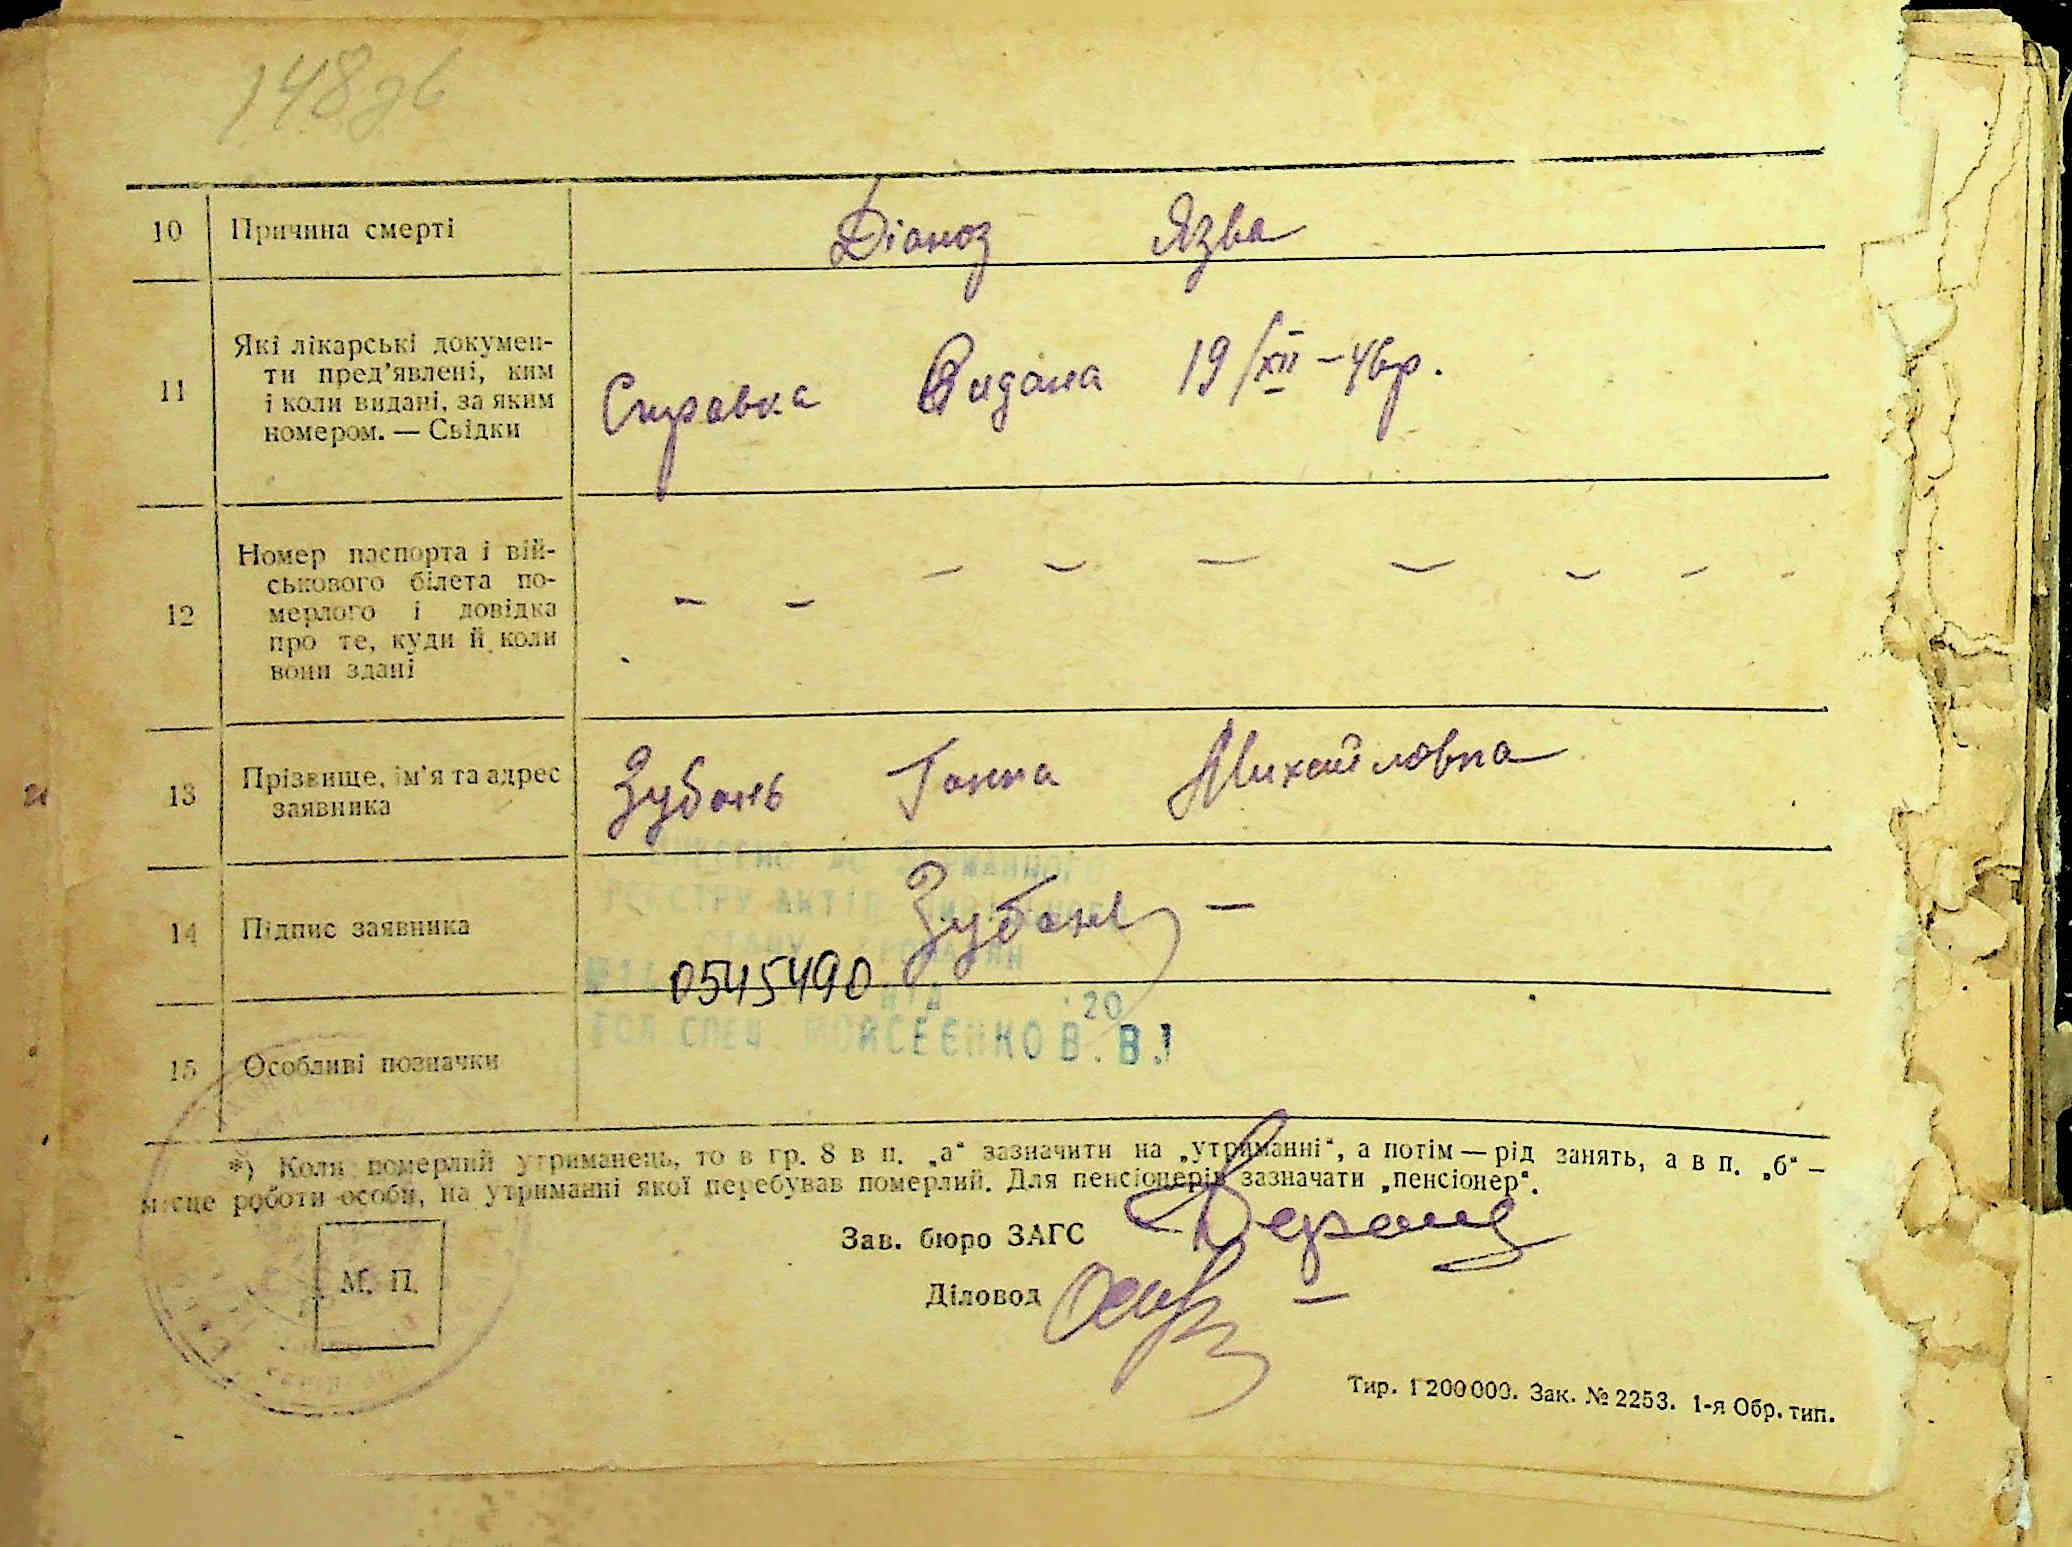 148зв
10 Причина смерті Діаноз Язва
Які лікарські докумен-
ти пред'явлені, ким
11 і коли видані, за яким Справка Видана 19/XII-46р.
номером. — Свідки
Номер паспорта і вій-
ськового білета по-
12 мерлого і довідка
про те, куди й коли
вони здані
13 Прізвище, ім'я та адрес Зубань Ганна Михайловна
заявника
ВНЕСЕНО ДО ДЕРЖАВНОГО
РЕЄСТРУ АКТІВ ЦИВІЛЬНОГО
14 Підпис заявника Зубань —
СТАНУ ГРОМАДЯН
0545490
20
ГОЛ СПЕЦ МОЙСЕЄНКО В.В.
15 Особливі позначки
*) Коли померлий утриманець, то в гр. 8 в п. „а“ зазначити на „утриманні“, а потім — рід занять, а в п. „б“ –
місце роботи особи, на утриманні якої перебував померлий. Для пенсіонерів зазначати „пенсіонер“.
Зав. бюро ЗАГС
М. П.
Діловод
Тир. 1 200 000. Зак. № 2253. 1-я Обр. тип.